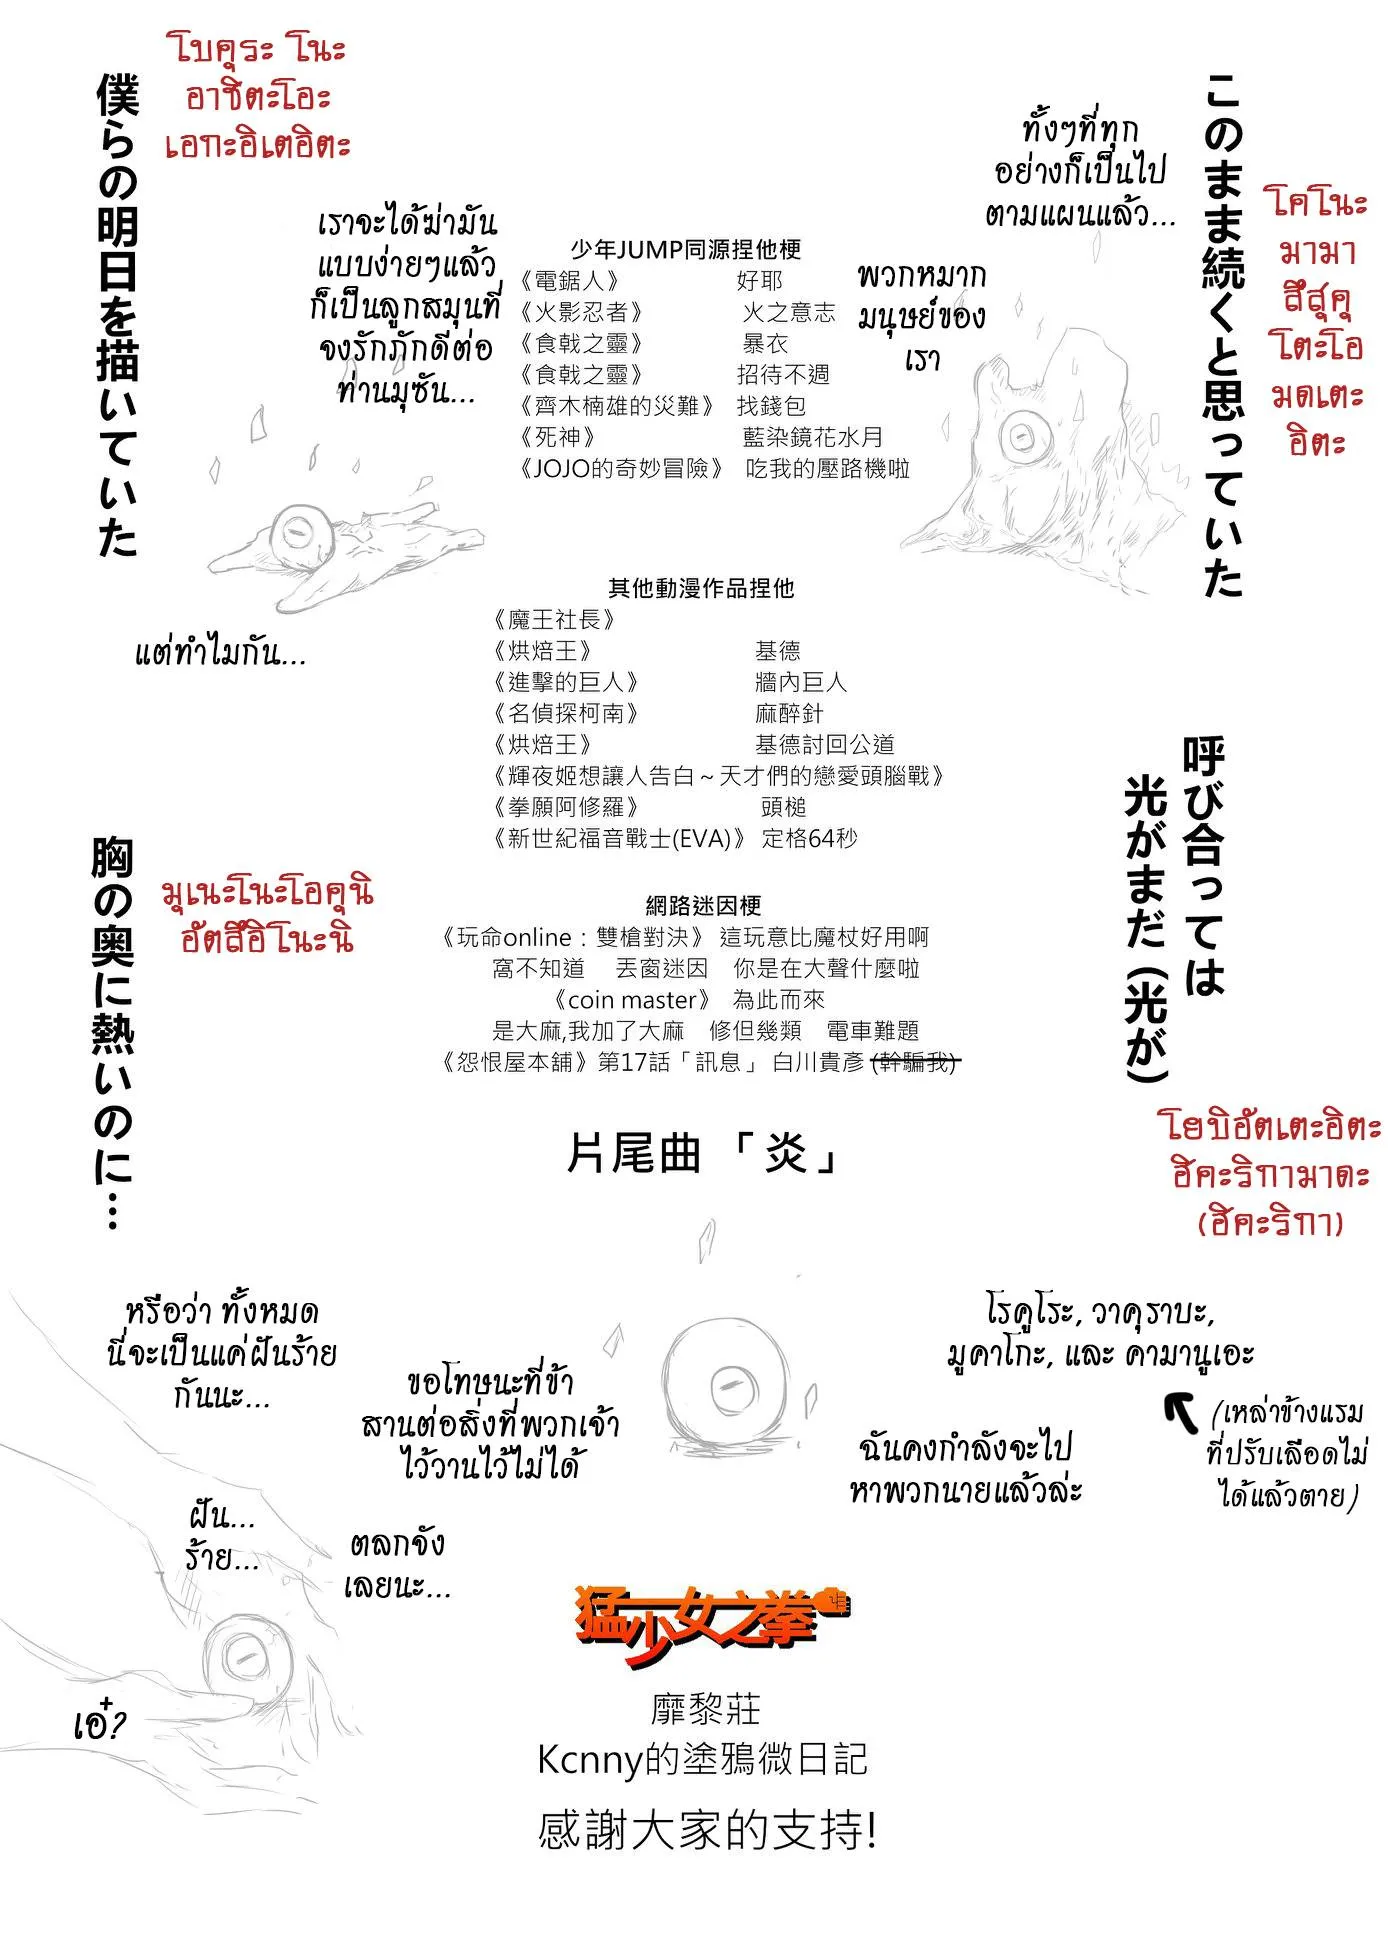 このまま続くと思っていた
โคโนะ
มามา
สึสุคุ
โตะโอ
มดเตะ
อิตะ
ทั้งๆที่ทุก
อย่างก็เป็นไป
ตามแผนแล้ว...
พวกหมาก
มนุษย์ของ
เรา
僕らの明日を描いていた
โบคุระ โนะ
อาชิตะโอะ
เอกะอิเตอิตะ
เราจะได้ฆ่ามัน
แบบง่ายๆแล้ว
ก็เป็นลูกสมุนที่
จงรักภักดีต่อ
ท่านมุซัน...
แต่ทำไมกัน...
少年JUMP同源捏他梗
《電鋸人》 好耶
《火影忍者》 火之意志
《食戟之靈》 暴衣
《食戟之靈》 招待不週
《齊木楠雄的災難》 找錢包
《死神》 藍染鏡花水月
《JOJO的奇妙冒險》 吃我的壓路機啦
其他動漫作品捏他
《魔王社長》
《烘焙王》 基德
《進擊的巨人》 牆內巨人
《名偵探柯南》 麻醉針
《烘焙王》 基德討回公道
《輝夜姬想讓人告白～天才們的戀愛頭腦戰》
《拳願阿修羅》 頭槌
《新世紀福音戰士(EVA)》 定格64秒
網路迷因梗
《玩命online：雙槍對決》 這玩意比魔杖好用啊
窩不知道 丟窗迷因 你是在大聲什麼啦
《coin master》 為此而來
是大麻,我加了大麻 修但幾類 電車難題
《怨恨屋本舖》第17話「訊息」 白川貴彥 (幹騙我)
片尾曲 「炎」
呼び合っては
光がまだ（光が）
โยบิอัตเตะอิตะ
ฮิคะริกามาดะ
(ฮิคะริกา)
胸の奥に熱いのに…
มุเนะโนะโอคุนิ
อัตสึอิโนะนิ
โรคูโระ, วาคุราบะ,
มูคาโกะ, และ คามานูเอะ
(เหล่าข้างแรม
ที่ปรับเลือดไม่
ได้แล้วตาย)
ฉันคงกำลังจะไป
หาพวกนายแล้วล่ะ
ขอโทษนะที่ข้า
สานต่อสิ่งที่พวกเจ้า
ไว้วานไว้ไม่ได้
หรือว่า ทั้งหมด
นี่จะเป็นแค่ฝันร้าย
กันนะ...
ฝัน...
ร้าย...
ตลกจัง
เลยนะ...
เอ๋?
猛少女之拳
靡黎莊
Kcnny的塗鴉微日記
感謝大家的支持!